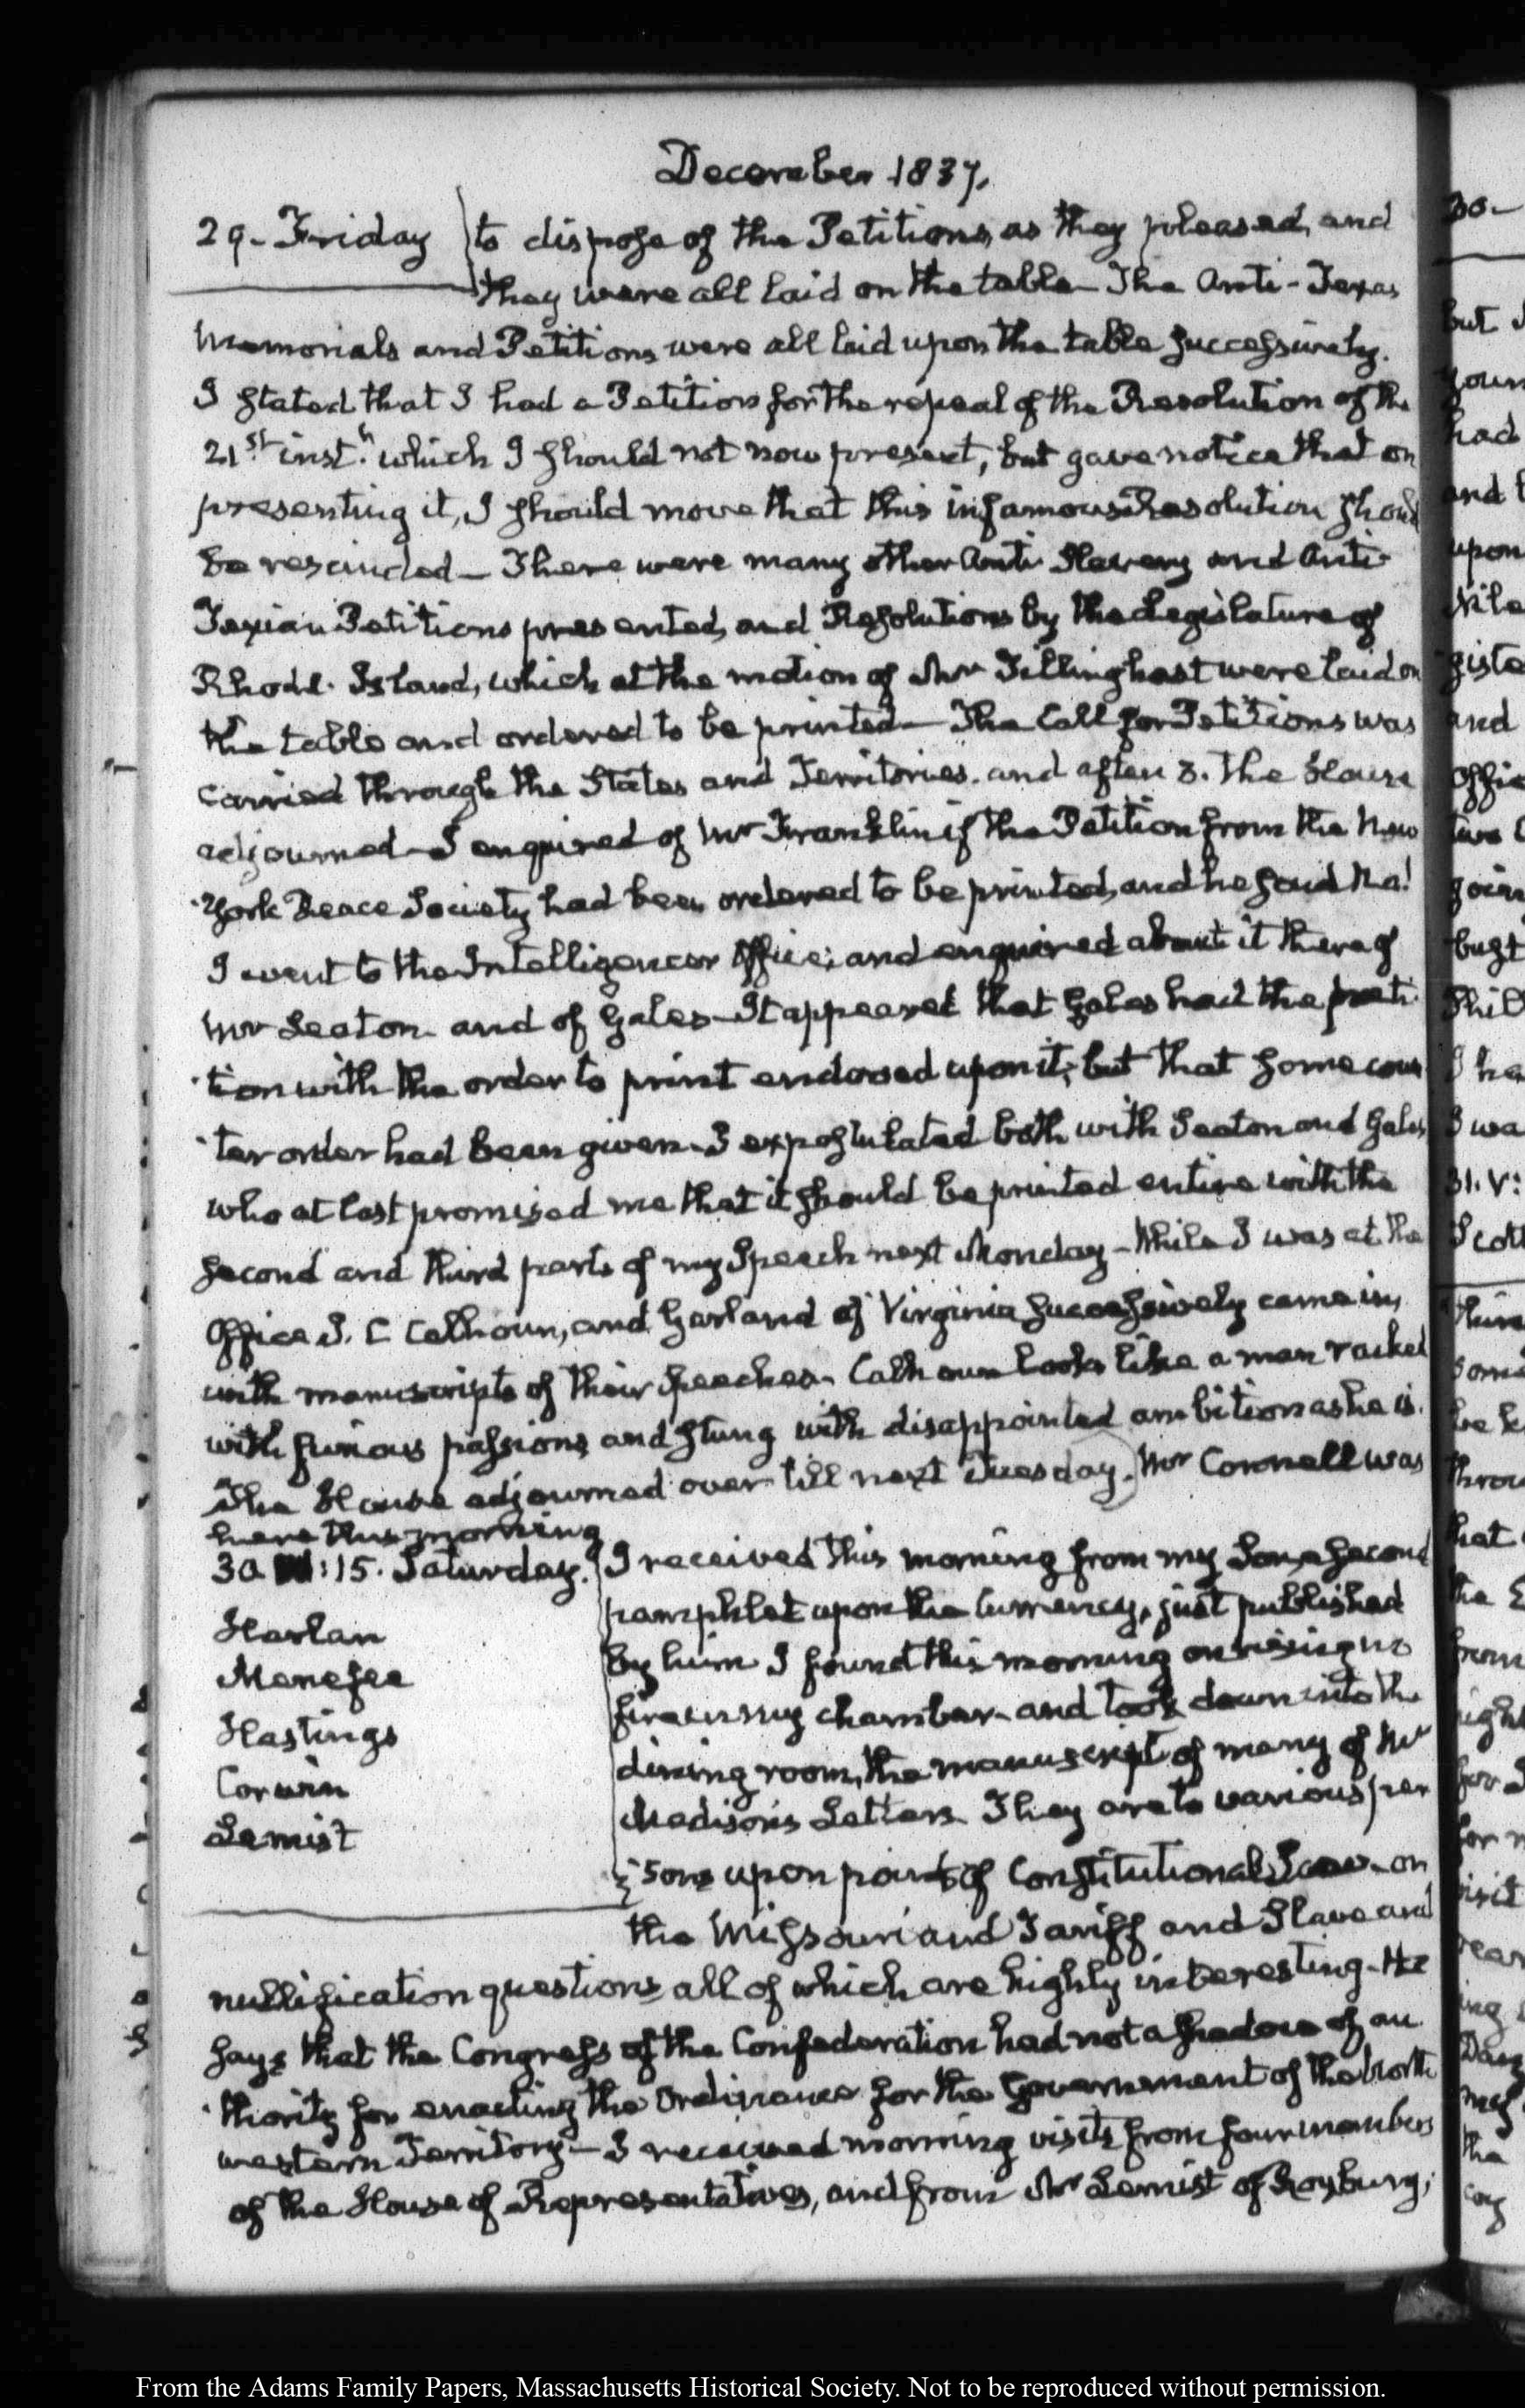 December 1837.
29. Friday
to dispose of the Petitions as they pleased, and
they were all laid on the table – The Anti-Texas
Memorials and Petitions were all laid upon the table successively.
I stated that I had a Petition for the repeal of the Resolution of the
21st inst. which I should not now present, but gave notice that on
presenting it, I should move that this infamous Resolution should
be rescinded – There were many other Anti Slavery and Anti-
Texian Petitions presented, and Resolutions by the Legislature of
Rhode-Island, which at the motion of Mr Tillinghast were laid on
the table and ordered to be printed – The Call for Petitions was
carried through the States and Territories. and after 3. the House
adjourned – I enquired of Mr Franklin if the Petition from the New
York Peace Society had been ordered to be printed, and he said No!
I went to the Intelligencer Office; and enquired about it there of
Mr Seaton and of Gales – It appeared that Gales had the peti-
tion with the order to print endorsed upon it; but that some coun
ter order had been given – I expostulated both with Seaton and Gales
who at last promised me that it should be printed entire with the
second and third parts of my Speech next Monday – While I was at the
Office J. C Calhoun, and Garland of Virginia successively came in,
with manuscripts of their Speeches – Calhoun looks like a man racked
with furious passions and stung with disappointed ambition as he is.
The House adjourned over till next Tuesday. Mr Cornell was
here this morning
30. :15. Saturday.
Harlan
Menefee
Hastings
Corwin
Lemist
I received this morning from my Son, a second
pamphlet upon the Currency, just published
by him I found this morning on rising no
fire in my chamber – and took down into the
dining room, the manuscript of many of Mr
Madison's Letters They are to various per
sons upon points of Constitutional Law – on
the Missouri and Tariff and Slave and
nullification questions all of which are highly interesting – He
says that the Congress of the Confederation had not a shadow of au
thority for enacting the Ordinance for the Government of the North
western Territory – I received morning visits from four members
of the House of Representatives, and from Mr Lemist of Roxbury;
From the Adams Family Papers, Massachusetts Historical Society. Not to be reproduced without permission.